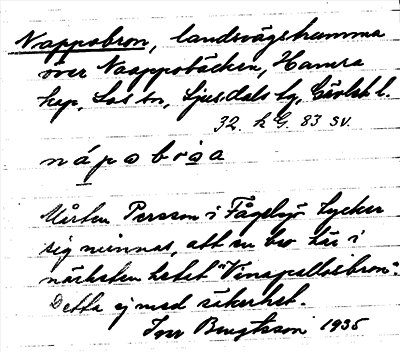 Nappobron, landsvägstrumma
över Nappobäcken, Hamra
kap, Los sn, Ljusdals tg, Gävleb l.
32. h G. 83 SV.
nápobròa
Mårten Persson i Fågelsjö tycker
sig minnas, att en bro här i
närheten hetat "Vinapallosbron".
Detta ej med säkerhet.
Ivar Bengtsson 1935